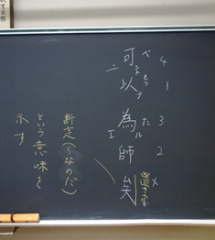 4
1
3
2
×
置き字
可以為師矣
たル
二
断定(〜なのだ)
という意味を
示す